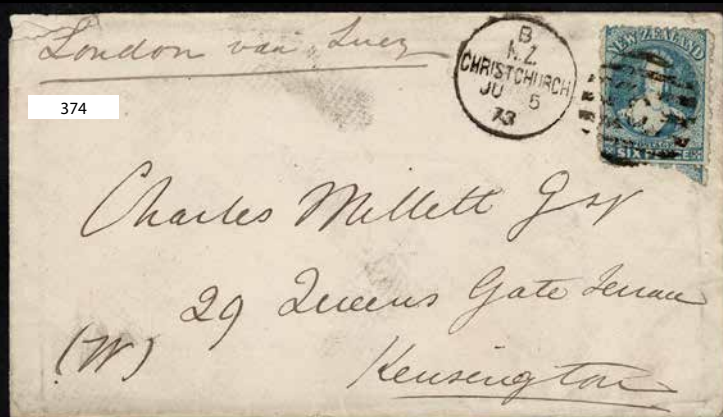 London via Suez
374
B
N.Z.
CHRISTCHURCH
JU 5
73
NEW ZEALAND
POSTAGE
SIXPENCE
Charles Millett Esqr
29 Queens Gate Terrace
(W)
Kensington